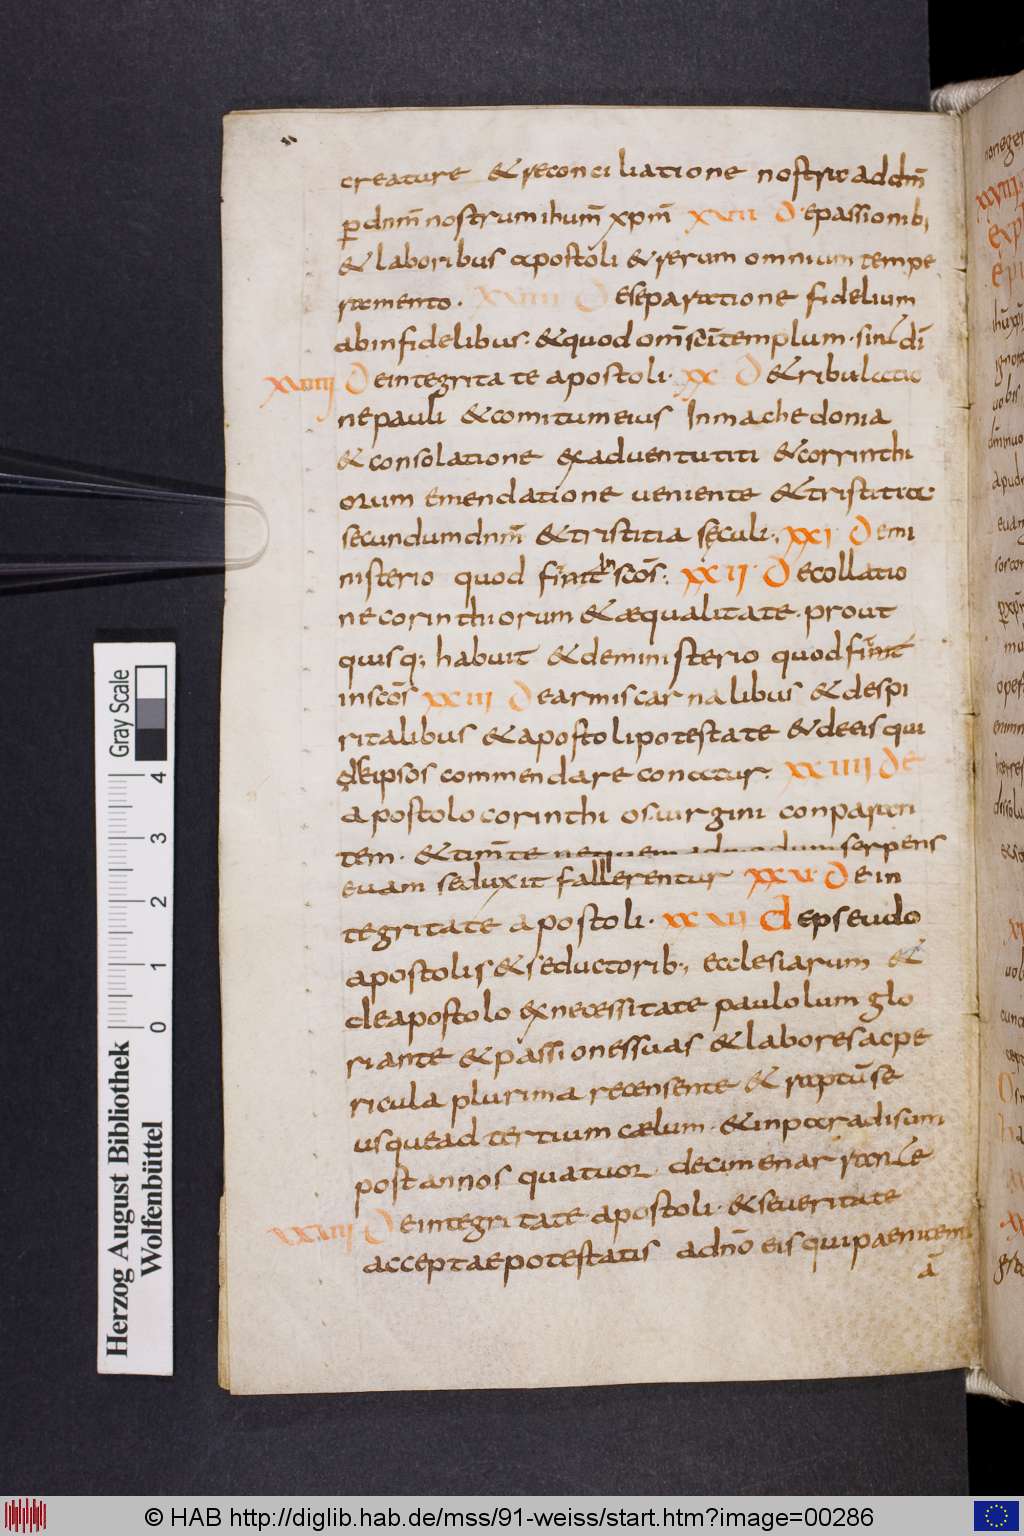 creature & reconciliatione nostra ad dn̄m
p dn̄m nostrum ihum̄ xpm̄ XVII De passionib;
& laboribus apostoli & rerum omnium tempe
ramento. XVIII De separatione fidelium
ab infidelibus. & quod om̄s sc̄i templum. sint dī
XVIIII De integritate apostoli. XX De tribulatio
ne pauli & comitum eius In machedonia
& consolatione ex adventu titi & corrinthi
orum emendatione veniente & tristitia
secundum dn̄m & tristitia seculi., XXI. De mi
nisterio quod fiunt in scōs; XXII. De collatio
ne corinthiorum & æqualitate. prout
quisq; habuit & de ministerio quod fiunt
in scōs XXIII De armis carnalibus & de spi
ritalibus & apostoli potestate & de eis qui
se ipsos commendare conatur. XXIIII De
apostolo corinthios virgini conparan
tem. & tim̄te ne quem ad modum serpens
evam seduxit fallerentur XXV. De in
tegritate apostoli. XXVI de pseudo
apostolis & seductorib., ecclesiarum &
de apostolo ex necessitate paulolum glo
riante & passiones suas & labores ac pe
ricula plurima recensente & raptū se
usque ad tertium cælum. & in paradisum
post annos quatuor. decim enarrante
XXVII De integritate apostoli. & severitate
acceptae potestatis a dn̄o eis qui paenitem
ā
Gray Scale
4 3 2 1 0
Herzog August Bibliothek
Wolfenbüttel
© HAB http://diglib.hab.de/mss/91-weiss/start.htm?image=00286